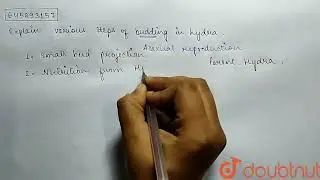 645893157
Explain various steps of budding in hydra
Asexual reproduction
1. Small bud projection
Parent Hydra.
2. Nutrition from Hy
doubtnut